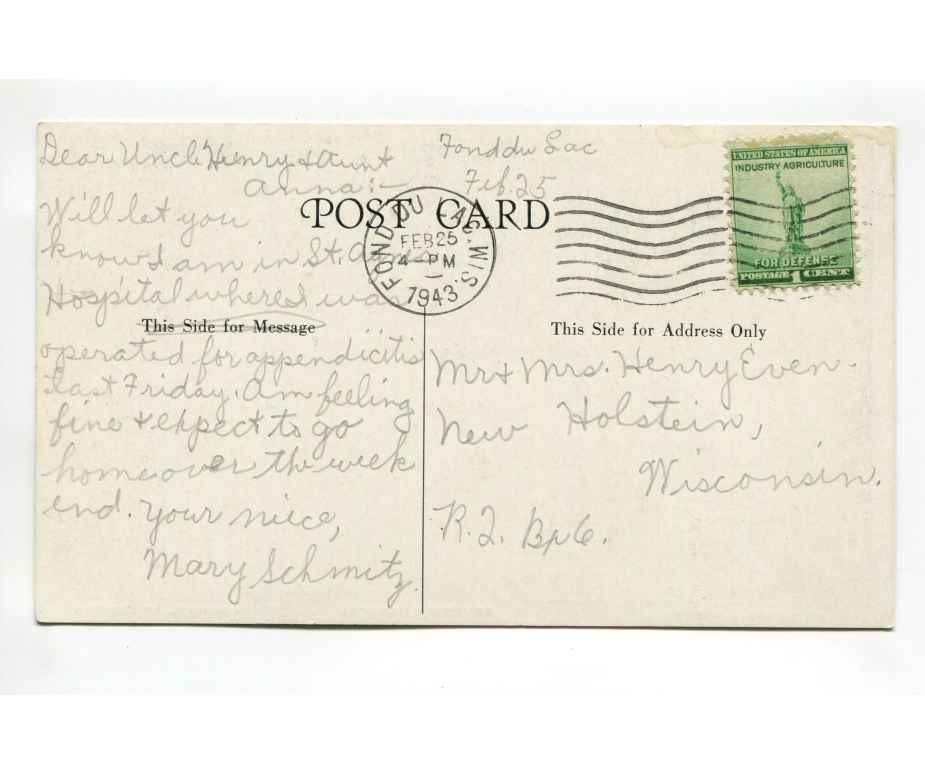 Dear Uncle Henry & Aunt
Anna:-
Fond du Lac
Feb. 25
Will let you
know I am in St. Agnes
Hospital where I was
operated for appendicitis
last Friday. Am feeling
fine & expect to go
home over the week
end. Your niece,
Mary Schmitz
POST CARD
This Side for Message
FOND DU LAC, WIS.
FEB 25
4 - PM
1943
UNITED STATES OF AMERICA
INDUSTRY AGRICULTURE
FOR DEFENSE
POSTAGE 1 CENT
This Side for Address Only
Mr & Mrs. Henry Even.
New Holstein,
Wisconsin.
R.2. Bx 6.